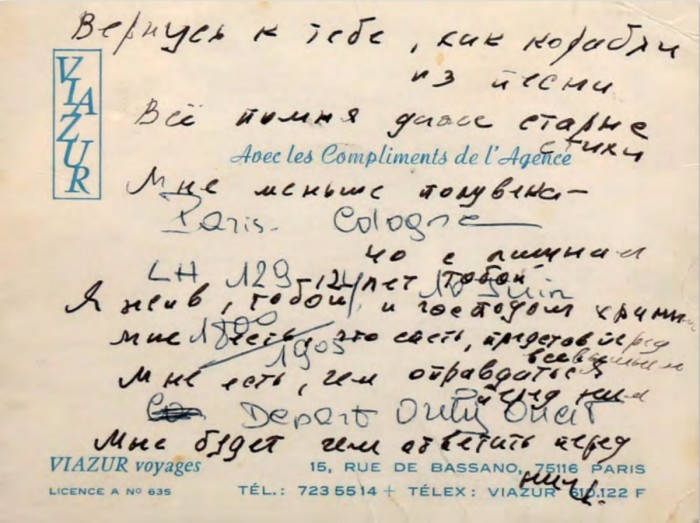 Вернусь к тебе, как корабли
из песни
Всё помня даже старые
стихи
VIAZUR
Avec les Compliments de l'Agence
Мне меньше полувека —
Paris - Cologne
чо с лишним
LH 129 10 Juin
12 лет тобой
Я жив, тобой и господом храним
1800
мне есть, что спеть, представ перед
всевышним
1905
Мне есть, чем оправдаться
перед ним
Depart Orly Ouest
Мне будет чем ответить перед
ним.
VIAZUR voyages
15, RUE DE BASSANO, 75116 PARIS
LICENCE A Nº 635
TÉL.: 723 55 14 + TÉLEX: VIAZUR 610.122 F